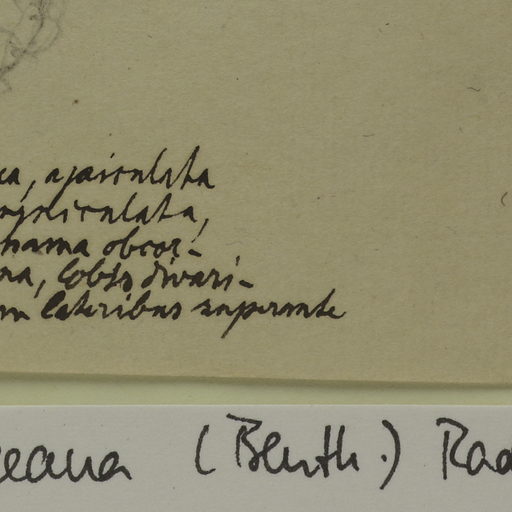 ca, apiculata
apiculata,
nama obcor-
na, lobis divari-
m lateribus superante
eana (Benth.) Rad